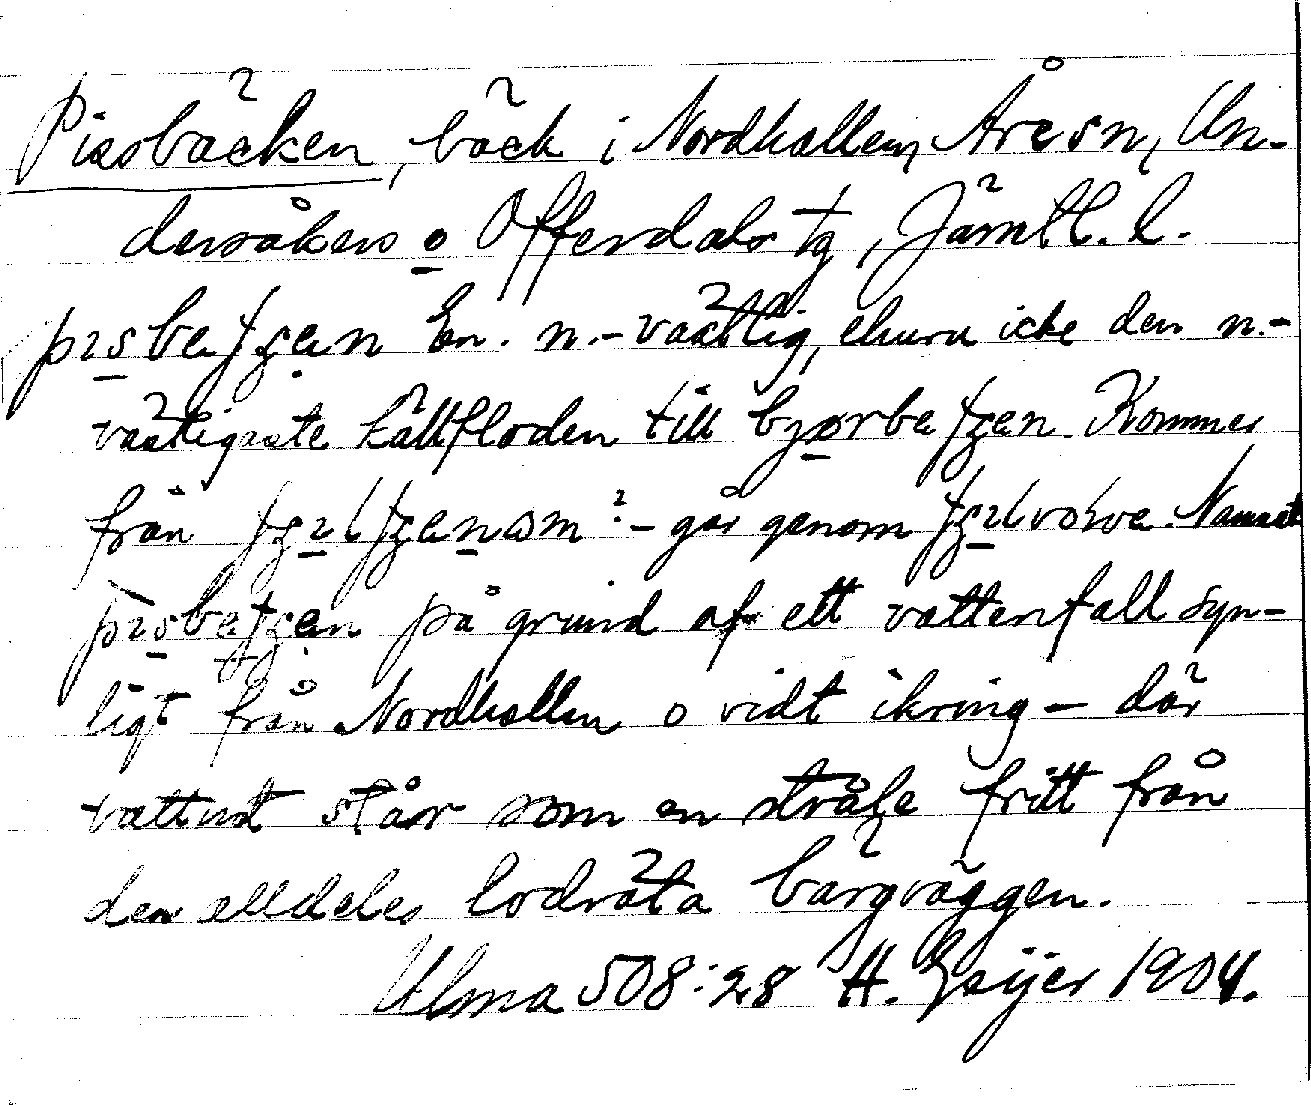 Pissbäcken, bäck i Nordhallen, Åre sn, Un-
dersåkers o Offerdals tg, Jämtl. l.
En. n.-västlig, ehuru icke den n.-
västligaste källfloden till Kommer
från ?- går genom Namnet
på grund af ett vattenfall syn-
ligt från Nordhallen o vidt ikring - där
vattnet står som en stråle fritt från
den alldeles lodräta bärgväggen.
Ulma 508:28 H. Geijer 1904.